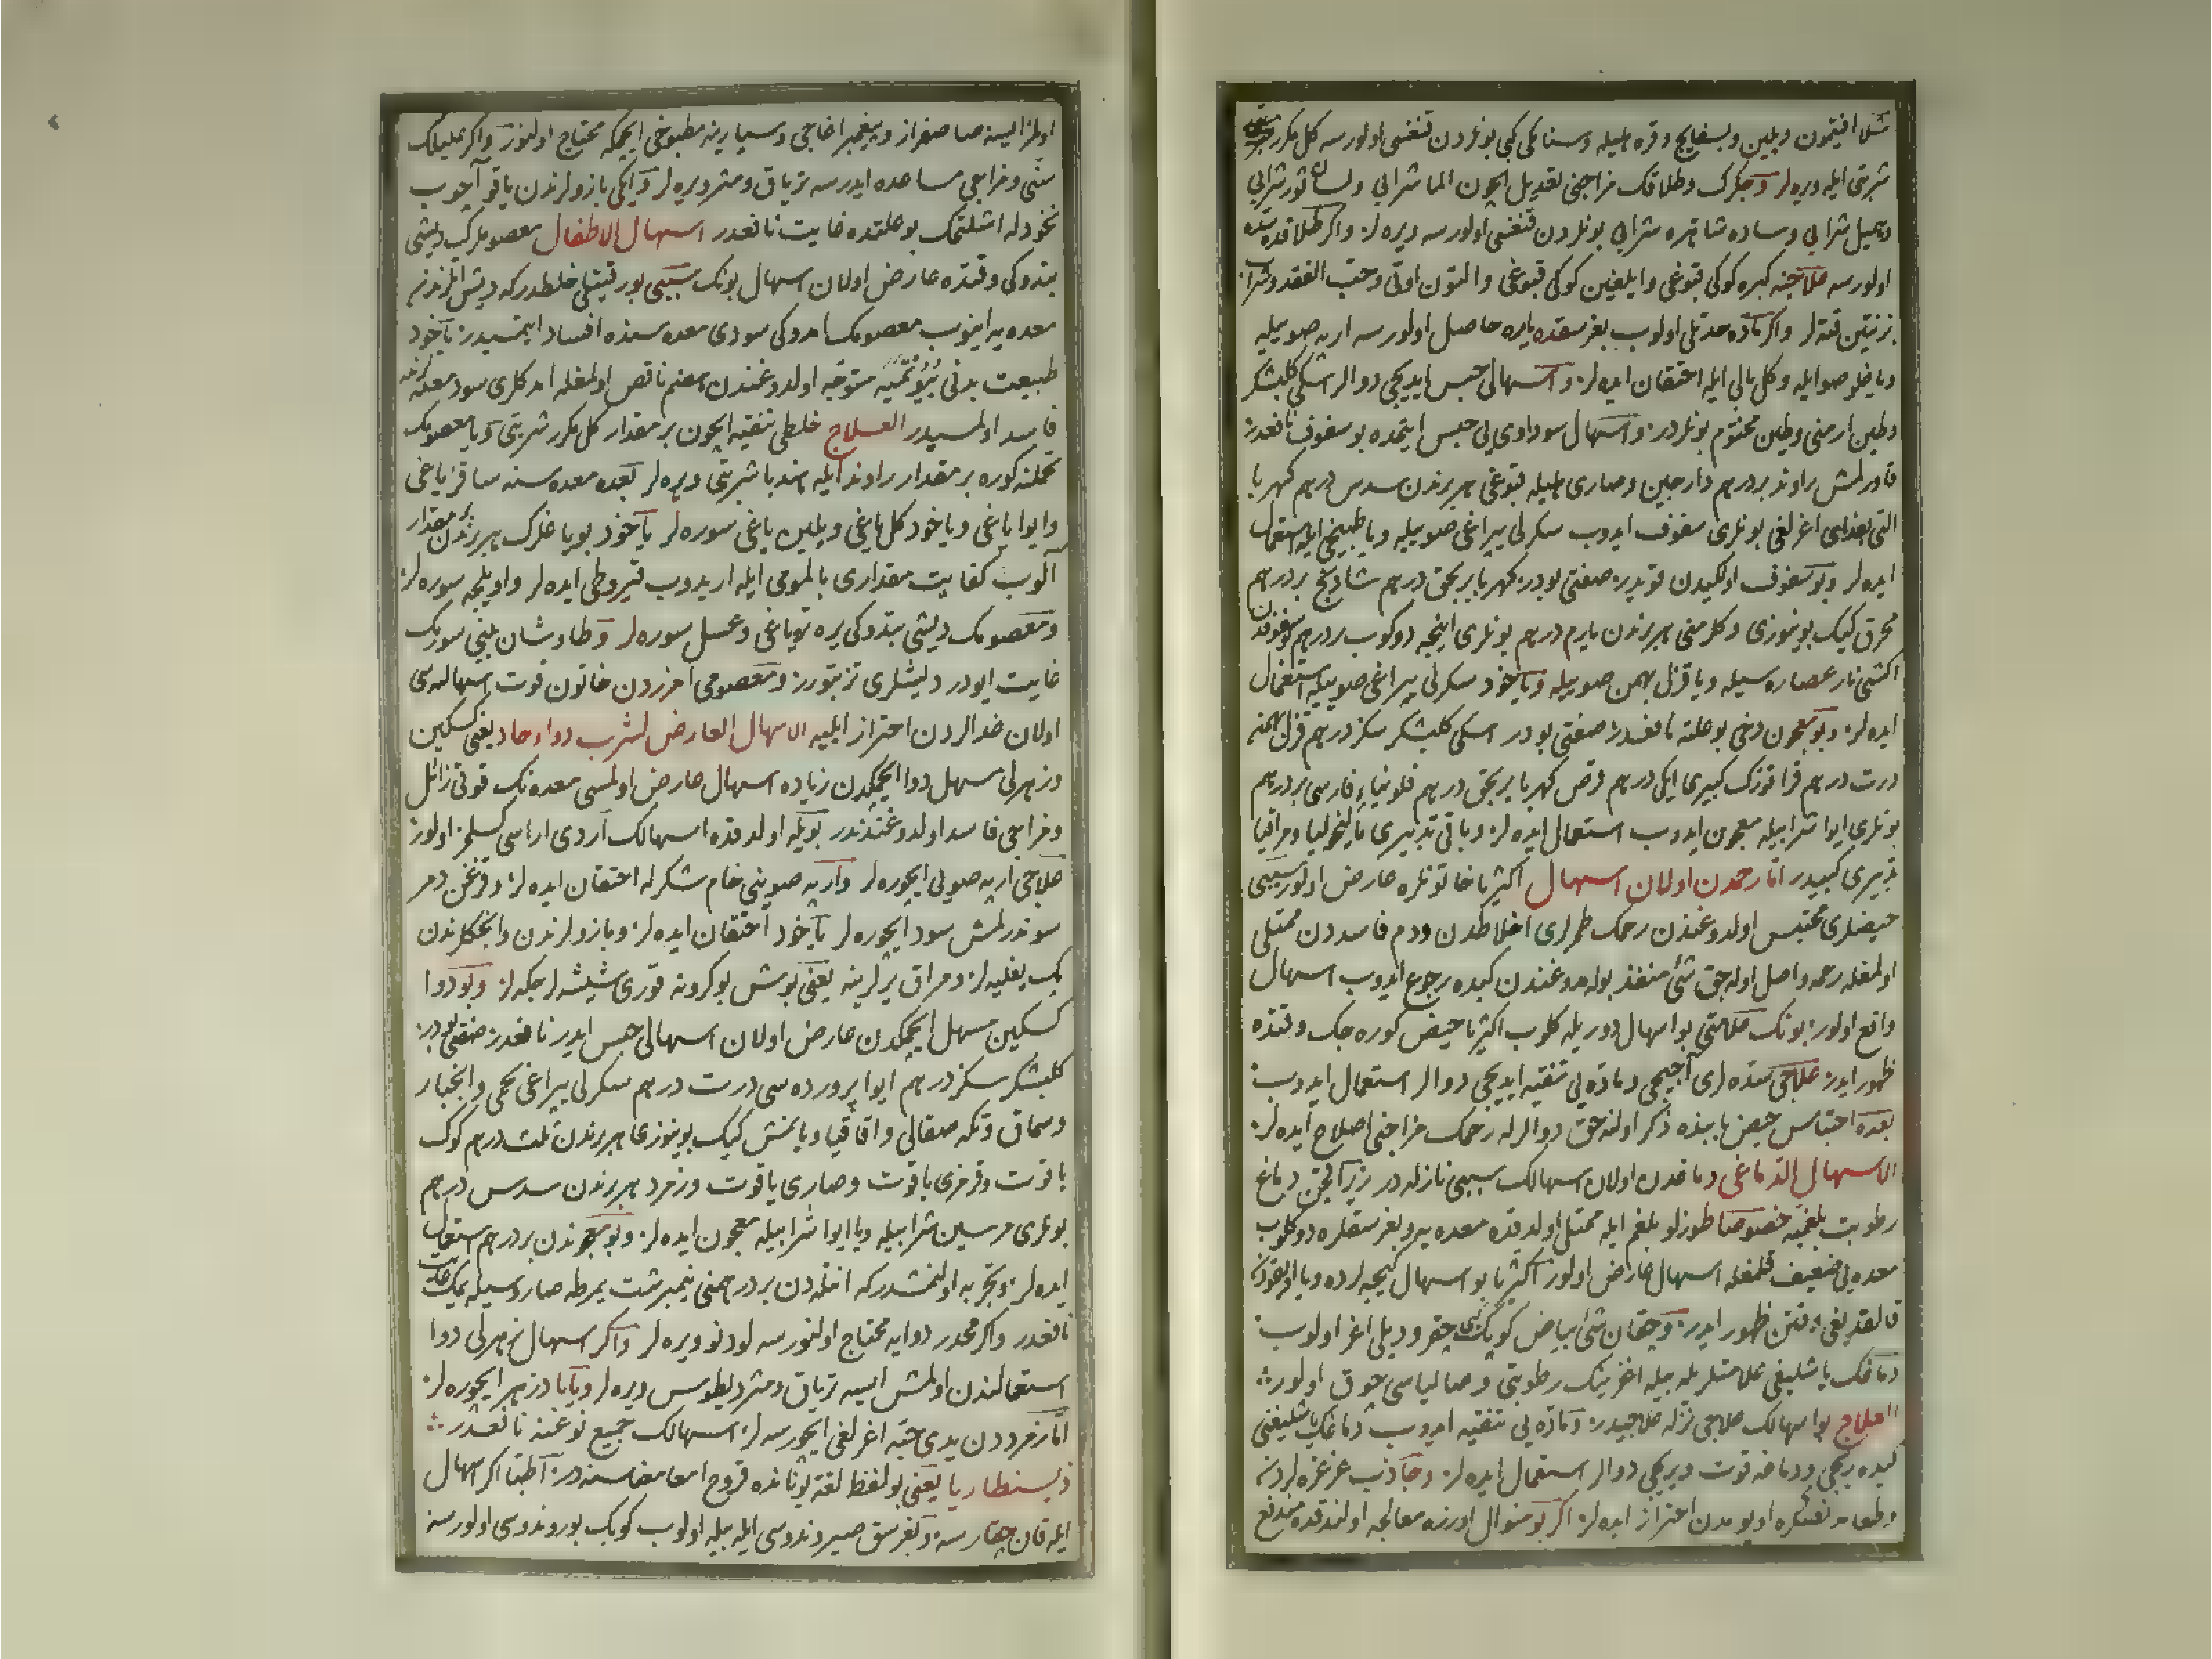 مثلا افتيمون وبلين وبسفايج وقره هليله وسنا مكى كبى بونلردن قنغسى اولورسه كل مكرر
شربتى ايله ويره لر وجكرك وطلاقك مزاجنى تعديل ايچون الما شرابى ولسان ثور شرابى
وهميل شرابى وساده شاهتره شرابى بونلردن قنغسى اولورسه ويره لر واكر طلاقده سده
اولورسه علاجنه كبره كوكى قبوغى وايلغين كوكى قبوغى والتون اوتى وحب الفقد وشراب
بزنتين قته لر واكر ماده حدتلى اولوب بغرسقده ياره حاصل اولورسه اربه صوييله
وياغلو صو ايله وكل يالى ايله احتقان ايده لر واسهالى حبس ايديجى دوالر اسكى كلبشكر
وطين ارمنى وطين مختوم بونلردر واسهال سوداوى يى حبس ايتمده بو سفوف نافعدر
قاورلمش راوند بر درهم دارچين وصارى هليله قبوغى هر برندن سدس درهم كهربا
التى بغداى اغرلغى بونلرى سفوف ايدوب سكرلى يپراغى صوييله ويا طبيخى ايله استعمال
ايده لر وبو سفوف اولكيدن قويدر صفتى بودر كهربا بر بچق درهم شادنج بر درهم
محرق كيك بوينوزى وكلرمنى هر برندن يارم درهم بونلرى اينجه دوكوب بر درهم بو سفوفدن
اكشى نار عصاره سيله ويا قزل بهمن صوييله وياخود سكرلى يپراغى صوييله استعمال
ايده لر وبو معجون دخى بو علته نافعدر صفتى بودر اسكى كلبشكر سكز درهم قزل بهمن
درت درهم قرا قوزك كبيرى ايكى درهم قرص كهربا بر بچق درهم فلونياء فارسى بر درهم
بونلرى ايوا شرابيله معجون ايدوب استعمال ايده لر وباقى تدبيرى ماليخوليا ومراقيا
تدبيرى كبيدر اما رحمدن اولان اسهال اكثريا خاتونلره عارض اولور سببى
حيضلرى محتبس اولدوغندن رحمك طمرلرى اخلاطدن ودم فاسددن ممتلى
اولمغله رحمه واصل اوله جق شئ منفذ بولمدوغندن كبده رجوع ايدوب اسهال
واقع اولور بونك علامتى بو اسهال دوريله كلوب اكثريا حيض كوره جك وقتده
ظهور ايدر علاجى سده لرى آچيجى وماده يى تنقيه ايديجى دوالر استعمال ايدوب
بعده احتباس حيض بابنده ذكر اولنه جق دوالرله رحمك مزاجنى اصلاح ايده لر
الاسهال الدماغى دماغدن اولان اسهالك سببى نازله در زيرا قچن دماغ
رطوبت بلغميه خصوصا طوزلو بلغم ايله ممتلى اولدقده معده يه وبغرسقلره دوكلوب
معده يى ضعيف قلمغله اسهال عارض اولور اكثريا بو اسهال كيجه لرده ويا اويقودن
قالقديغى وقتن ظهور ايدر وچقان شئ بياض كوپك كبى چقر ودپلى اغر اولوب
دماغك ياشليغى علامتلريله بيله اغزينك رطوبتى وصاليا سى چوق اولور
العلاج بو اسهالك علاجى نزله علاجيدر وماده يى تنقيه ايدوب دماغك ياشليغنى
كيده ريجى ودماغه قوت ويريجى دوالر استعمال ايده لر وجاذب غرغره لردن
وطعامدنصكره اويومدن احتراز ايده لر اكر بو منوال اوزره معالجه اولندقده مندفع
اولمز ايسه صاصفراز وپيغمبر اغاجى وسپارينه مطبوخى ايچمكه محتاج اولنور واكر عليلك
سنى ومزاجى مساعده ايدرسه ترياق ومثرو ديره لر وايكى بازولرندن ياقو آچوب
نخودله اشلتمك بو علتده غايت نافعدر اسهال الاطفال معصوملرك ديشى
بتدوكى وقتده عارض اولان اسهال بونك سببى بورقيتلى خلطدر كه ديش اتلرندن
معده يه اينوب معصومك امدوكى سودى معده سنده افساد ايتمسيدر ياخود
طبيعت بدنى تنميه متوجه اولدوغندن هضم ناقص اولمغله امدكلرى سود معده لرنده
فاسد اولمسيدر العلاج خلطى تنقيه ايچون بر مقدار كل مكرر شربتى ويا معصومك
تحملنه كوره بر مقدار راوند ايله هندبا شربتى ويره لر بعده معده سنه ساقز ياغى
وايوا ياغى وياخود كل ياغى وپلين ياغى سوره لر ياخود بو ياغلرك هر برندن بر مقدار
آلوب كفايت مقدارى بالمومى ايله اريدوب قيروطى ايده لر واويلجه سوره لر
ومعصومك ديشى بتدوكى يره تره ياغى وعسل سوره لر وطاوشان بينى سورمك
غايت ايودر ديشلرى تز بتورر ومعصومى امزردن خاتون قوت اسهاليه سى
اولان غدالردن احتراز ايليه الاسهال العارض لشرب دواء حاد يعنى كسكين
وزهرلى مسهل دوا ايچمكدن زياده اسهال عارض اولمسى معده نك قوتى زائل
ومزاجى فاسد اولدوغندندر بويله اولدقده اسهالك آردى اراسى كسلمز اولور
علاجى اربه صويى ايچوره لر واربه صوينى خام شكرله احتقان ايده لر وقزغن دمر
سوندرلمش سود ايچوره لر ياخود احتقان ايده لر وبازولرندن وانجكلرندن
پك بغليه لر ومراق يرلرينه يعنى بوش بوكرونه قورى شيشه لر چكه لر وبو دوا
كسكين مسهل ايچمكدن عارض اولان اسهالى حبس ايدر نافعدر صفتى بودر
كلبشكر سكز درهم ايوا پرورده سى درت درهم سكرلى يپراغى تخمى وانجبار
وسماق وتكه صقالى واقاقيا ويانمش كيك بوينوزى هر برندن ثلث درهم كوك
ياقوت وقرمزى ياقوت وصارى ياقوت وزمرد هر برندن سدس درهم
بونلرى مرسين شرابيله ويا ايوا شرابيله معجون ايده لر وبو معجوندن بر درهم استعمال
ايده لر وتجربه اولنمشدر كه انفله دن بر درهمنى نيمبرشت يمرطه صاروسيله يمك غايت
نافعدر واكر مخدر دوايه محتاج اولنورسه لودنو ويره لر واكر اسهال زهرلى دوا
استعمالندن اولمش ايسه ترياق ومثروديطوس ويره لر ويا پادزهر ايچوره لر
اما زمرددن يدى حبه اغرلغى ايچورسه لر اسهالك جميع نوعنه نافعدر
ذيسنطاريا يعنى بو لفظ لغة يونانده قروح امعا معناسنه در اطبا اكر اسهال
ايله قان چقارسه وبغرسق صيروندوسى ايله بيله اولوب كوبك بوروندوسى اولورسه